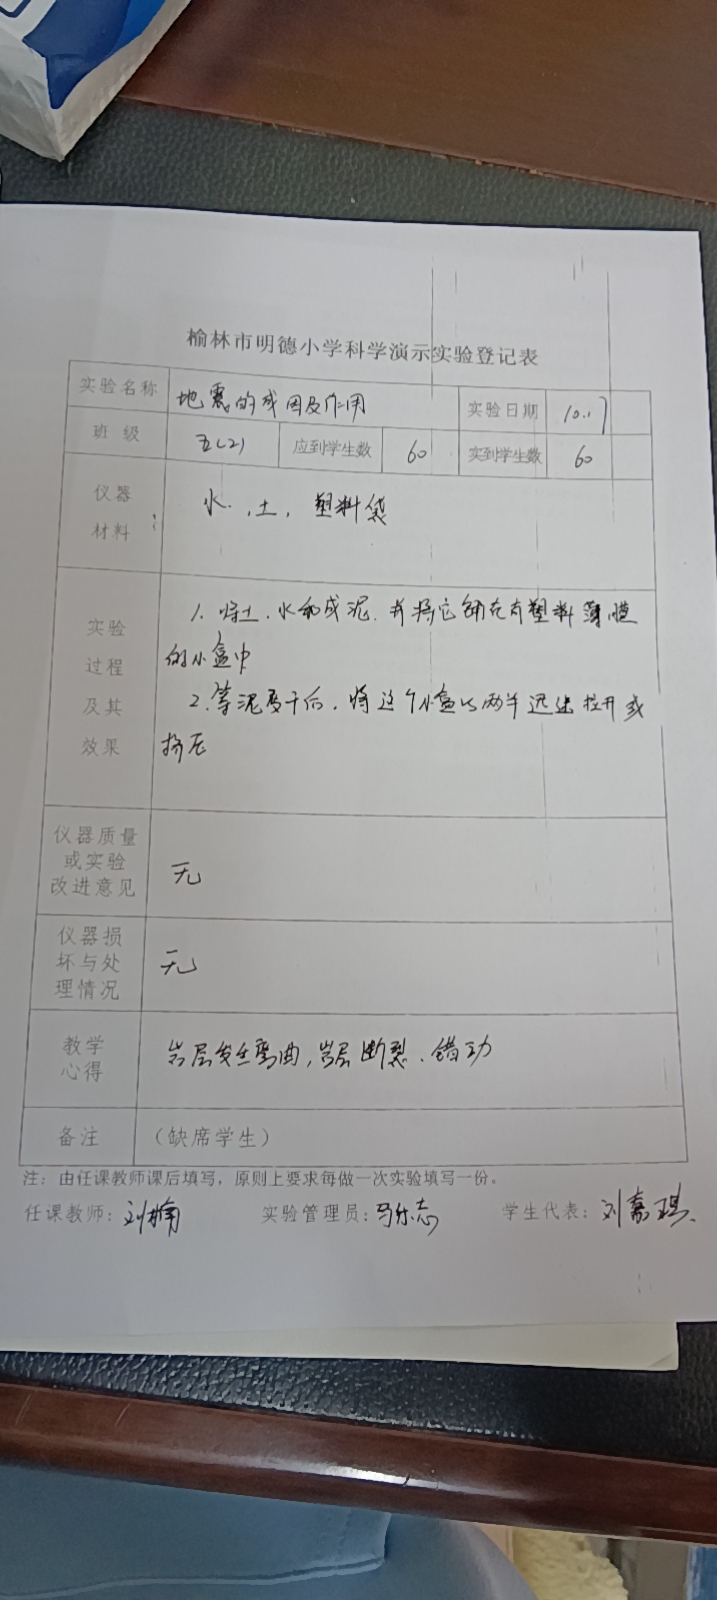 榆林市明德小学科学演示实验登记表
实验名称 地震的成因及作用 实验日期 10.17
班级 五(2) 应到学生数 60 实到学生数 60
仪器 水、土、塑料袋
材料
实验 1. 将土、水和成泥.并将它铺在有塑料薄膜
过程 的小盒中
及其 2.等泥变干后,将这个小盒的两半迅速拉开或
效果 挤压
仪器质量
或实验 无
改进意见
仪器损
坏与处 无
理情况
教学 岩层发生弯曲,岩层断裂、错动
心得
备注 (缺席学生)
注:由任课教师课后填写,原则上要求每做一次实验填写一份。
任课教师:刘楠 实验管理员: 学生代表:刘嘉琪